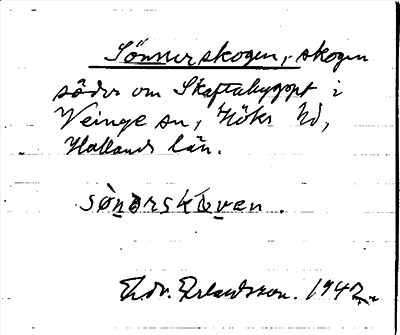 Sönnerskogen, skogen
söder om Skaftabygget i
Veinge sn, Höks hd,
Hallands län.
sònərskɯven.
Edv. Erlandsson. 1942.